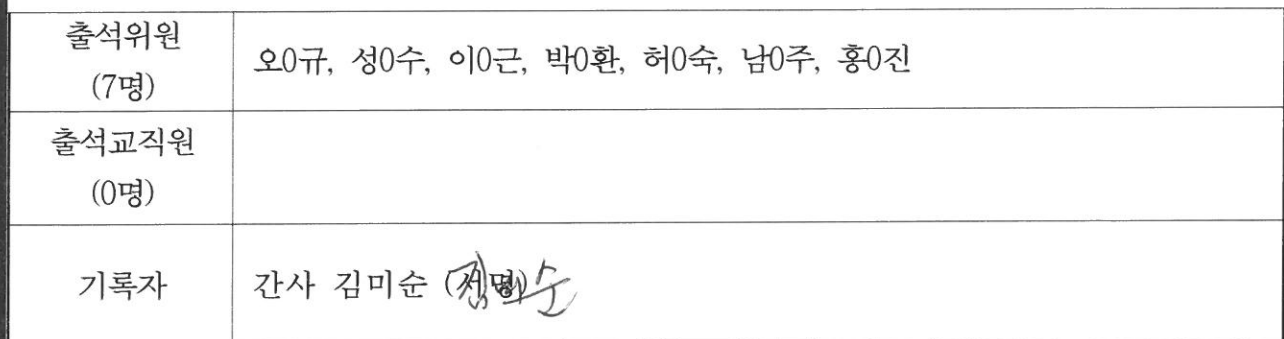 출석위원
(7명)
오0규, 성0수, 이0근, 박0환, 허0숙, 남0주, 홍0진
출석교직원
(0명)
기록자
간사 김미순 (서명)